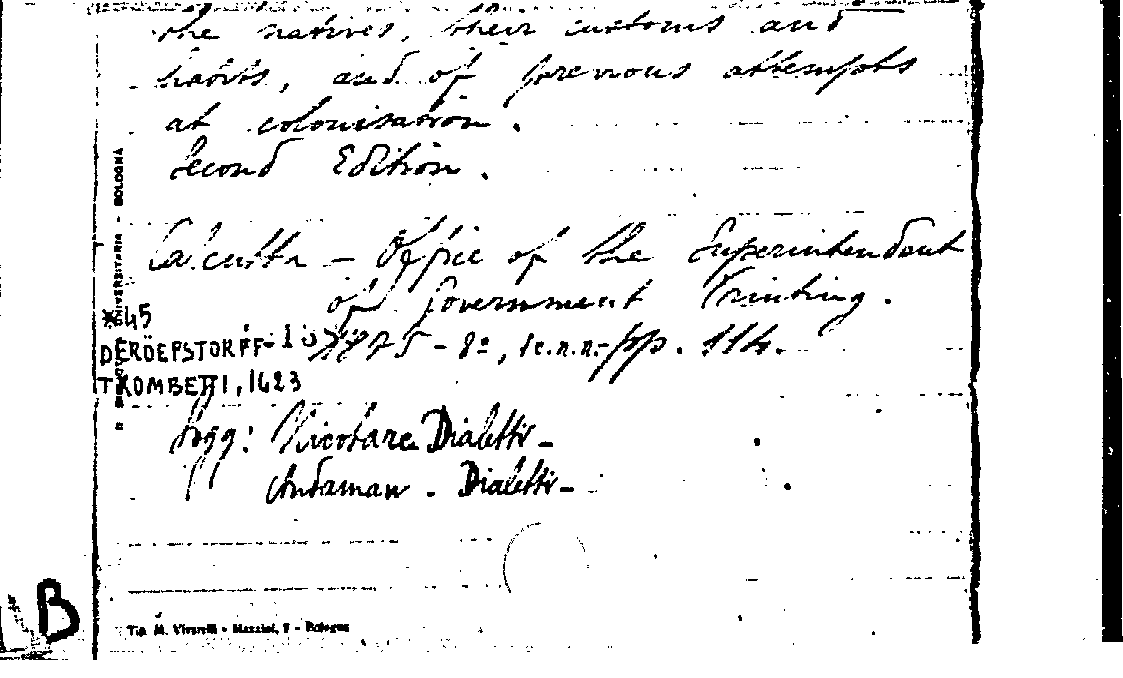 the natives, their customs and
habits, and of previous attempts
at colonisation.
Second Edition.
Calcutta – Office of the Superintendent
of Government Printing.
1875 – 8º, pp. 114.
*45
DERÖEPSTORFF-18
TROMBETTI, 1623
Sogg: Nicobare Dialetti –
Andaman – Dialetti –
UNIVERSITARIA – BOLOGNA
B
Tip. M. Vivarelli – Mazzini, 7 – Bologna